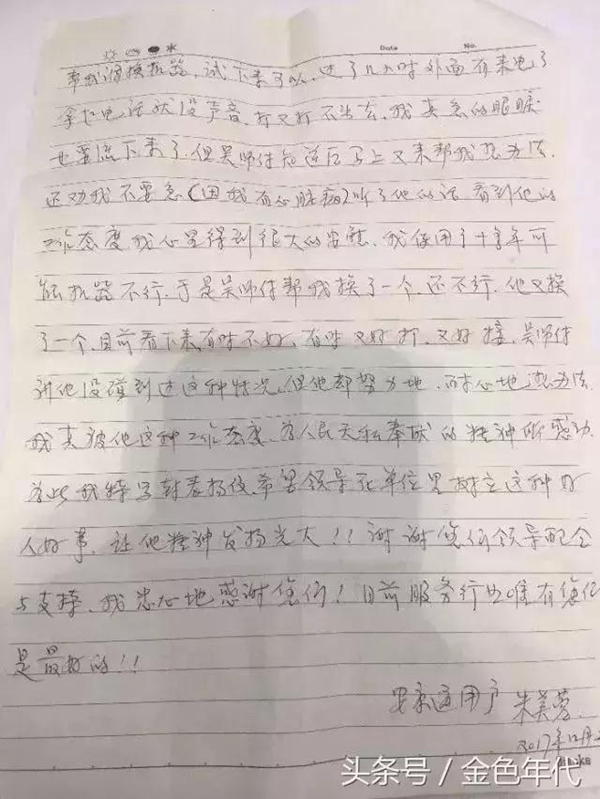 Date No.
帮我调换机器，试下来可以，过了几小时外面有来电了
拿起电话就没声音，打又打不出去，我真急的眼睛
也要流下来了，但吴师傅知道后马上又来帮我想办法
还劝我不要急（因我有心脏病）听了他的话，看到他的
工作态度，我心里得到很大的安慰，我使用了十多年可
能机器不行，于是吴师傅帮我换了一个，还不行，他又换
了一个，目前看下来，有时不好，有时又好打，又好接，吴师傅
讲他没碰到过这种情况，但他却努力地，耐心地想办法
我真被他这种工作态度，为人民无私奉献的精神所感动
为此我特写封表扬信，希望领导在单位里树立这种好
人好事，让他精神发扬光大！！谢谢您们领导配合
与支持，我忠心地感谢您们！目前服务行业唯有您们
是最好的！！
安康通用户 朱美
2017年12月
头条号 / 金色年代